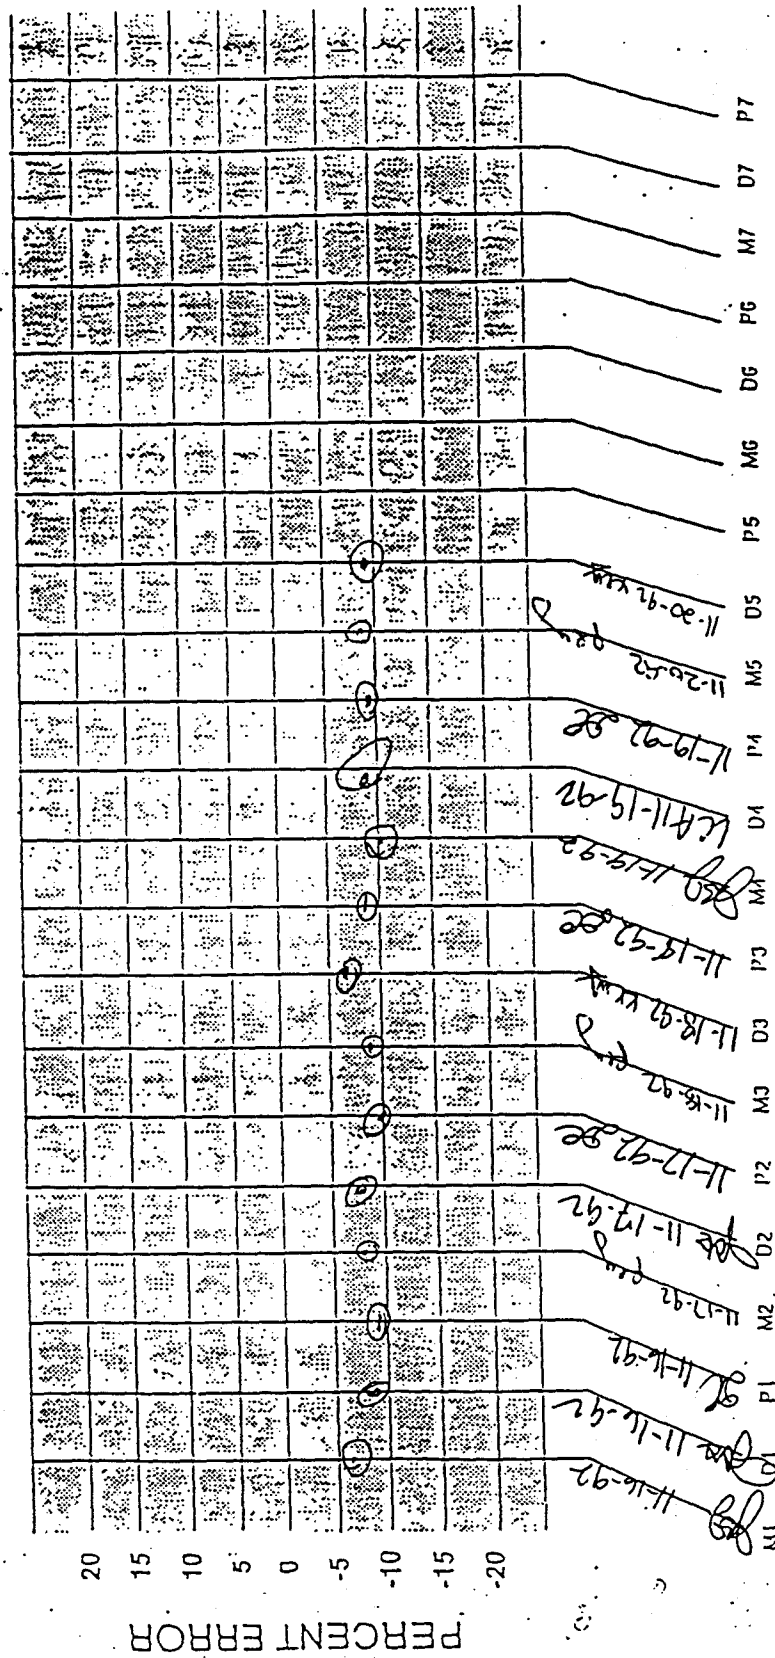 PERCENT ERROR
20
15
10
5
0
-5
-10
-15
-10
-20
M1 11-16-92
D1 11-16-92
P1 11-16-92
M2 11-17-92
D2 11-17-92
P2 11-17-92
M3 11-18-92
D3 11-18-92
P3 11-18-92
M4 11-19-92
D4 11-19-92
P4 11-19-92
M5 11-20-92
D5 11-20-92
P5
M6
D6
P6
M7
D7
P7